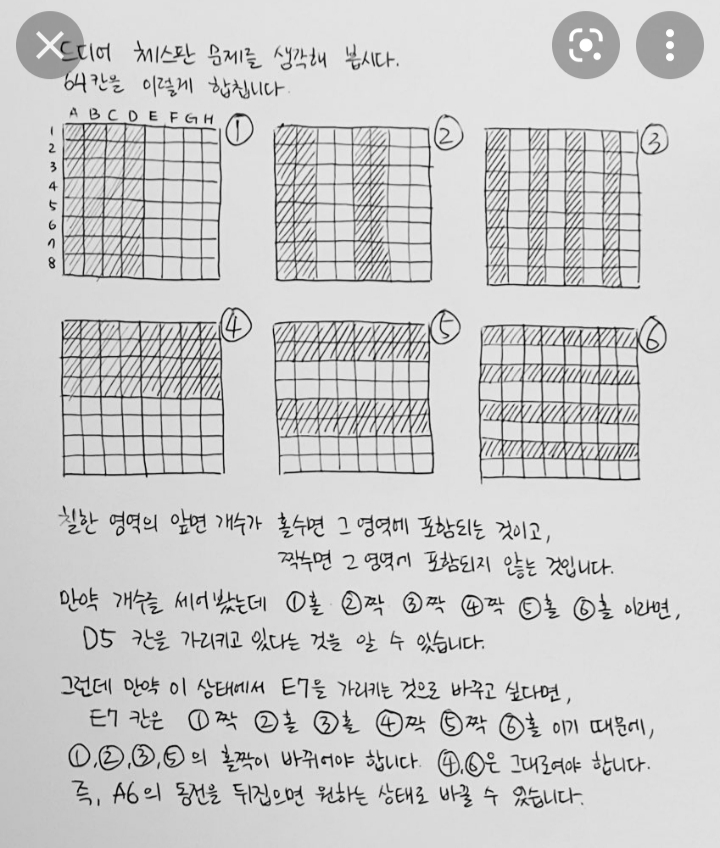 드디어 체스판 문제를 생각해 봅시다.
64칸을 이렇게 합칩니다.
A B C D E F G H ① ② ③
1
2
3
4
5
6
7
8
④ ⑤ ⑥
칠한 영역의 앞면 개수가 홀수면 그 영역에 포함되는 것이고,
짝수면 그 영역에 포함되지 않는 것입니다.
만약 개수를 세어봤는데 ①홀 ②짝 ③짝 ④짝 ⑤홀 ⑥홀 이라면,
D5 칸을 가리키고 있다는 것을 알 수 있습니다.
그런데 만약 이 상태에서 E7을 가리키는 것으로 바꾸고 싶다면,
E7 칸은 ①짝 ②홀 ③홀 ④짝 ⑤짝 ⑥홀 이기 때문에,
①,②,③,⑤의 홀짝이 바뀌어야 합니다. ④,⑥은 그대로여야 합니다.
즉, A6의 동전을 뒤집으면 원하는 상태로 바꿀 수 있습니다.